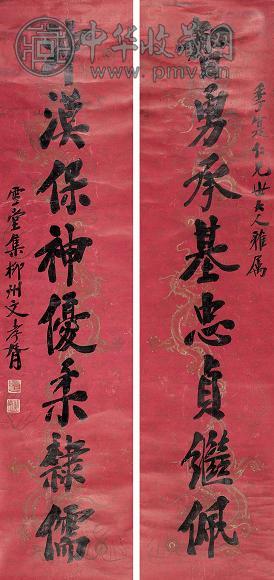 中华收藏网
www.pmv.cn
季寔仁兄世大人雅属
智勇承基忠貞繼佩
沖漠保神優柔隸儒
雪堂集柳州文孝胥